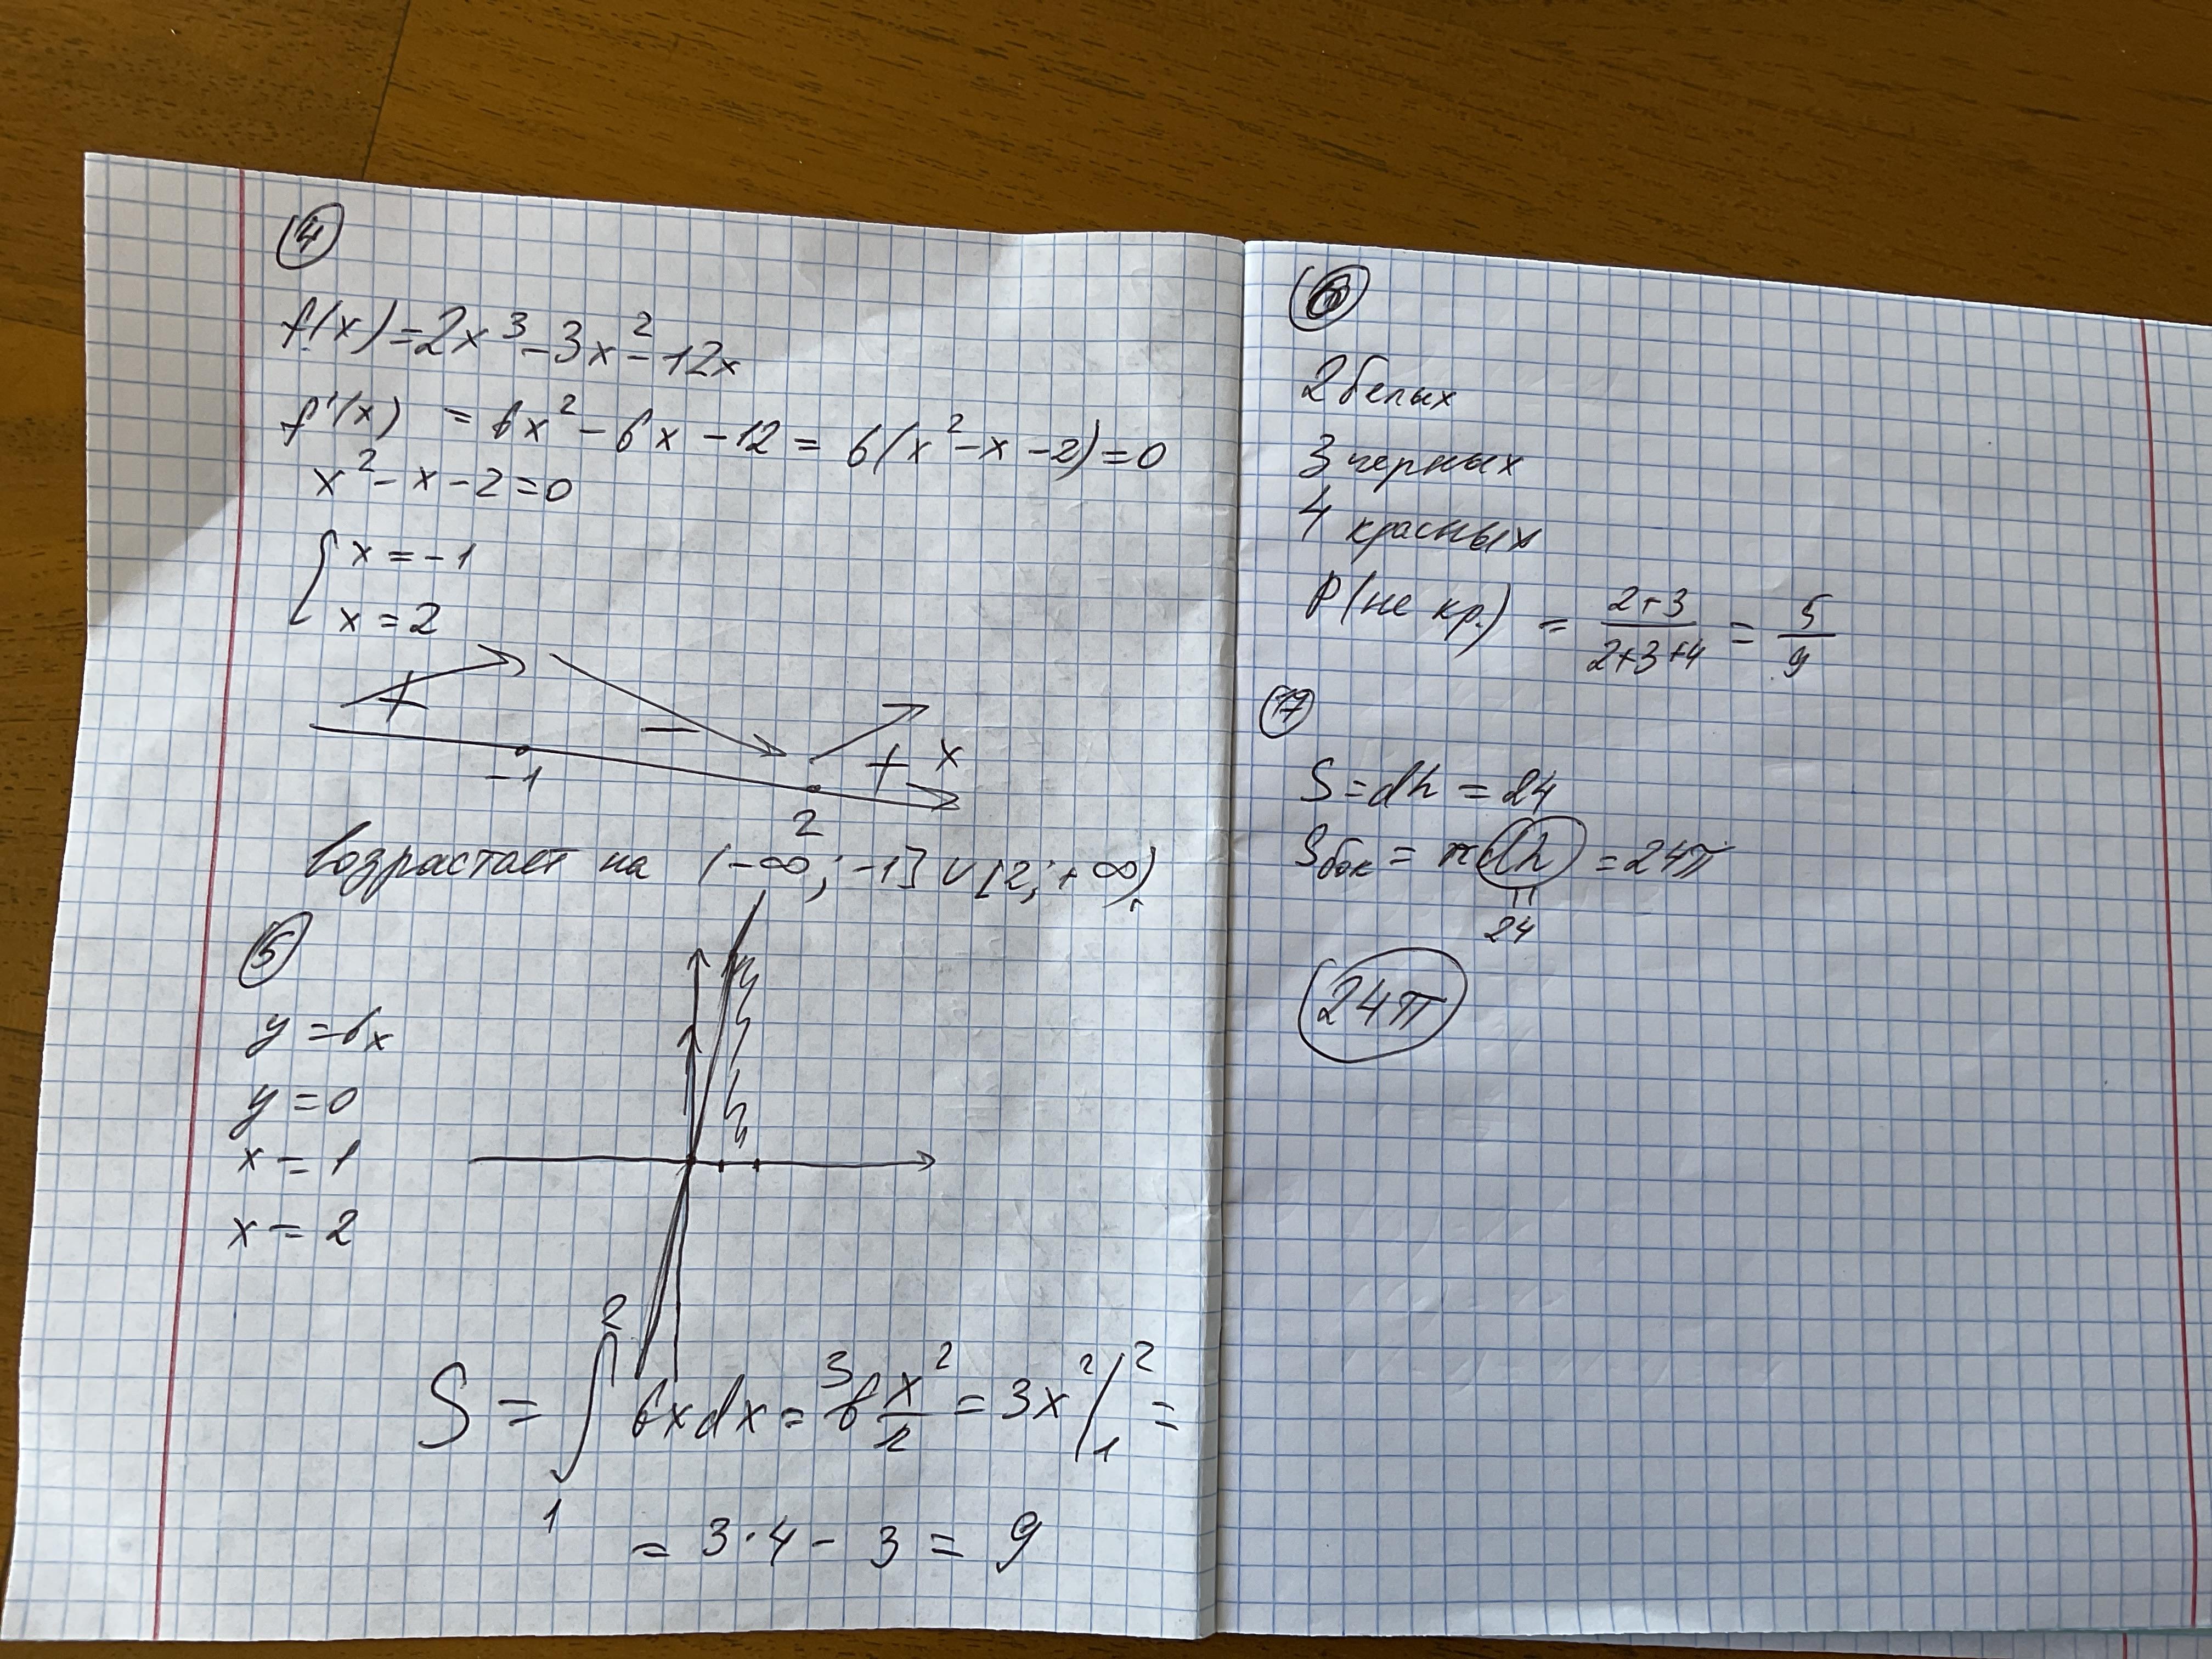 4
f(x) = 2x³ - 3x² - 12x
f'(x) = 6x² - 6x - 12 = 6(x² - x - 2) = 0
x² - x - 2 = 0
{ x = -1
x = 2
+ − + x
-1 2
возрастает на (-∞; -1] ∪ [2; +∞)
5
y = 6x
y = 0
x = 1
x = 2
S = ∫₁² 6x dx = ³6 x²/2 = 3x² |₁² =
= 3·4 - 3 = 9
6
2 белых
3 черных
4 красных
P(не кр.) = (2+3)/(2+3+4) = 5/9
17
S = dh = 24
Sбок = π dh = 24π
24
24π